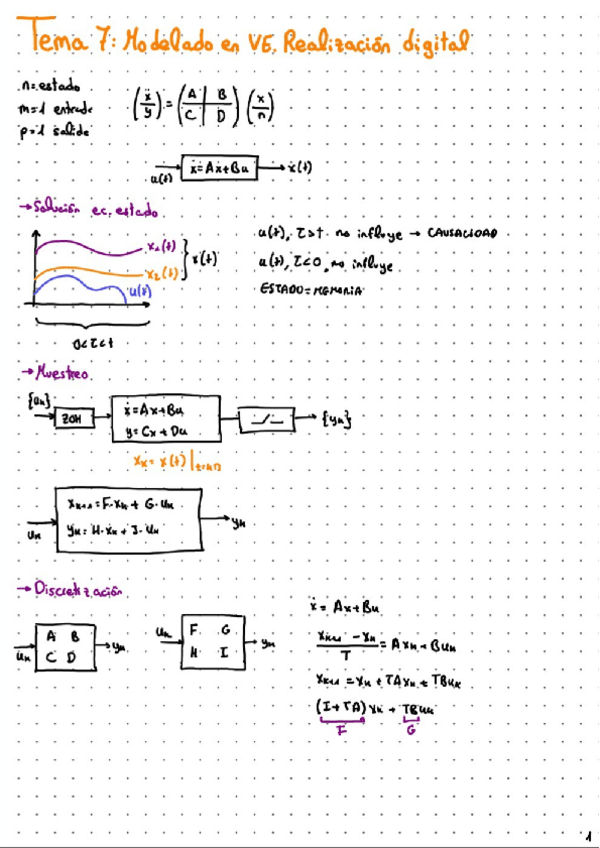 Tema 7: Modelado en VE. Realización digital
n = estado
m=1 entrada
p=1 salida
(ẋ/y) = (A B / C D) (x/n)
u(t) ẋ=Ax+Bu x(t)
→ Solución ec. estado
x₁(t)
x₂(t)
x(t)
u(t)
0<τ<t
u(t), τ>t no influye → CAUSALIDAD
u(t), τ<0, no influye
ESTADO = MEMORIA
→ Muestreo
{uₖ} ZOH ẋ=Ax+Bu {yₖ}
y=Cx+Du
xₖ = x(t)|
xₖ₊₁ = F·xₖ + G·uₖ
uₖ yₖ = H·xₖ + J·uₖ yₖ
→ Discretización
uₖ A B C D yₖ
uₖ F G H I yₖ
ẋ = Ax+Bu
(xₖ₊₁ - xₖ)/T = Axₖ + Buₖ
xₖ₊₁ = xₖ + TAxₖ + TBuₖ
(I+TA)xₖ + TBuₖ
F G
1